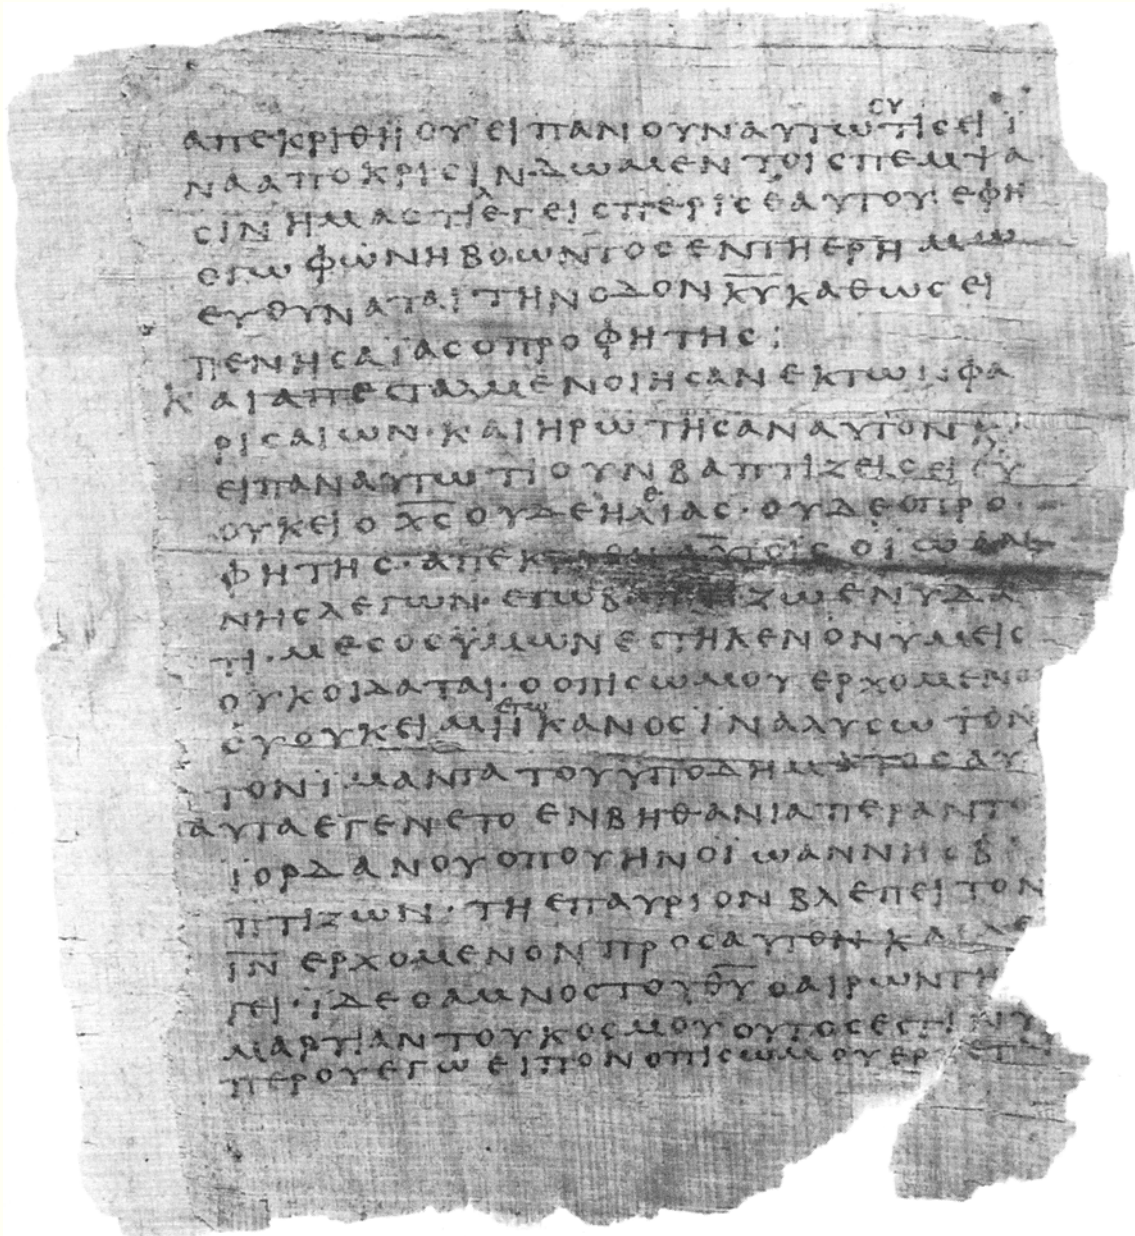 ΑΠΕΚΡΙΘΗ ΟΥ ΕΙΠΑΝ ΟΥΝ ΑΥΤΩ ΣΥ ΤΙΣ ΕΙ Ϊ
ΝΑ ΑΠΟΚΡΙΣΙΝ ΔΩΜΕΝ ΤΟΙΣ ΠΕΜΨΑ
ΣΙΝ ΗΜΑΣ ΤΙ ΛΕΓΕΙΣ ΠΕΡΙ ΣΕΑΥΤΟΥ· ΕΦΗ
ΕΓΩ ΦΩΝΗ ΒΟΩΝΤΟΣ ΕΝ ΤΗ ΕΡΗΜΩ
ΕΥΘΥΝΑΤΑΙ ΤΗΝ ΟΔΟΝ Κ̅Υ̅ ΚΑΘΩΣ ΕΙ
ΠΕΝ ΗΣΑΪΑΣ Ο ΠΡΟΦΗΤΗΣ :
ΚΑΙ ΑΠΕΣΤΑΛΜΕΝΟΙ ΗΣΑΝ ΕΚ ΤΩΝ ΦΑ
ΡΙΣΑΙΩΝ· ΚΑΙ ΗΡΩΤΗΣΑΝ ΑΥΤΟΝ
ΕΙΠΑΝ ΑΥΤΩ ΤΙ ΟΥΝ ΒΑΠΤΙΖΕΙΣ ΕΙ ΣΥ
ΟΥΚ ΕΙ Ο Χ̅Σ̅ ΟΥΔΕ ΗΛΙΑΣ· ΟΥΔΕ Ο ΠΡΟ
ΦΗΤΗΣ· ΑΥΤΟΙΣ Ο ΪΩΑΝ
ΝΗΣ ΛΕΓΩΝ· ΕΓΩ ΒΑΠΤΙΖΩ ΕΝ ΥΔΑ
ΤΙ· ΜΕΣΟΣ ΫΜΩΝ ΕΣΤΗΚΕΝ ΟΝ ΥΜΕΙΣ
ΟΥΚ ΟΙΔΑΤΑΙ· Ο ΟΠΙΣΩ ΜΟΥ ΕΡΧΟΜΕΝΟ
Σ ΟΥ ΟΥΚ ΕΙΜΙ ΕΓΩ ΪΚΑΝΟΣ ΪΝΑ ΛΥΣΩ ΤΟΝ
ΤΟΝ ΙΜΑΝΤΑ ΤΟΥ ΥΠΟΔΗΜΑΤΟΣ ΑΥ
ΤΑΥΤΑ ΕΓΕΝΕΤΟ ΕΝ ΒΗΘΑΝΙΑ ΠΕΡΑΝ ΤΟ
ΪΟΡΔΑΝΟΥ ΟΠΟΥ ΗΝ Ο ΪΩΑΝΝΗΣ Β
ΠΤΙΖΩΝ· ΤΗ ΕΠΑΥΡΙΟΝ ΒΛΕΠΕΙ ΤΟΝ
Ι̅Ν̅ ΕΡΧΟΜΕΝΟΝ ΠΡΟΣ ΑΥΤΟΝ ΚΑΙ ΛΕ
ΓΕΙ· ΪΔΕ Ο ΑΜΝΟΣ ΤΟΥ Θ̅Υ̅ Ο ΑΙΡΩΝ ΤΗ
ΜΑΡΤΙΑΝ ΤΟΥ ΚΟΣΜΟΥ ΟΥΤΟΣ ΕΣΤΙΝ Υ
ΠΕΡ ΟΥ ΕΓΩ ΕΙΠΟΝ ΟΠΙΣΩ ΜΟΥ